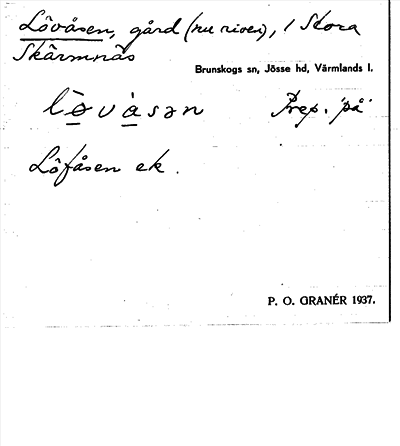 Lövåsen, gård (nu riven), i Stora
Skärmnäs
Brunskogs sn, Jösse hd, Värmlands l.
lø̀vàsən Prep. "på"
Löfåsen ek.
P. O. GRANÉR 1937.